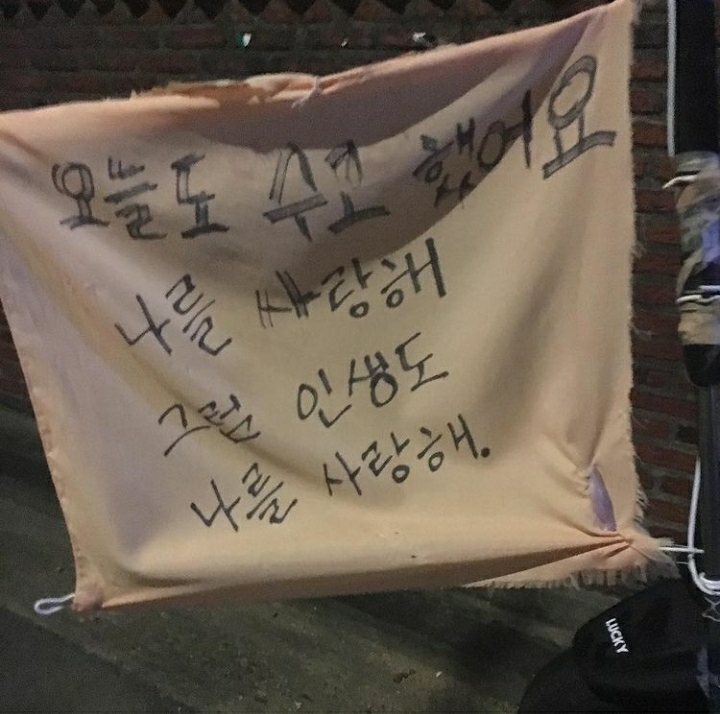 오늘도 수고 했어요
나를 사랑해
그럼 인생도
나를 사랑해.
LUCKY